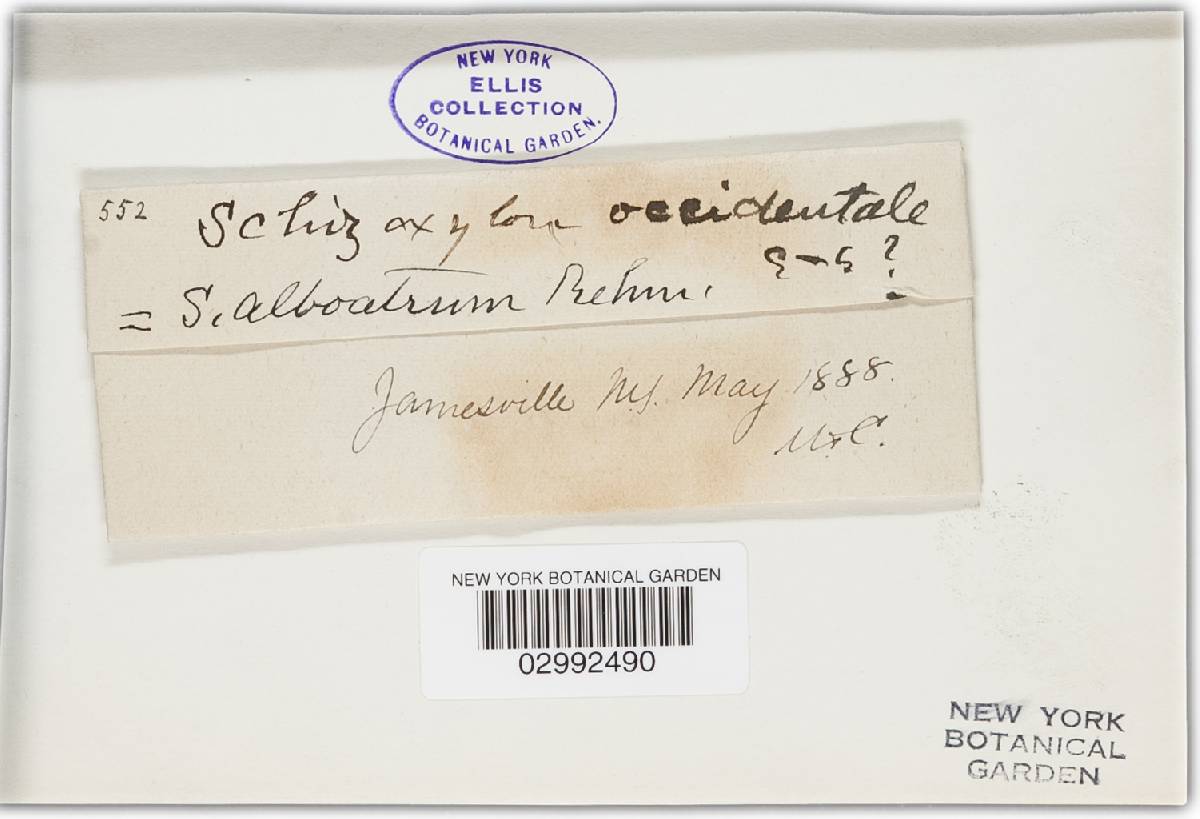 NEW YORK
ELLIS
COLLECTION
BOTANICAL GARDEN.
552 Schizoxylon occidentale
E-E ?
= S. alboatrum Rehm.
Jamesville NY. May 1888.
NEW YORK BOTANICAL GARDEN
02992490
NEW YORK
BOTANICAL
GARDEN